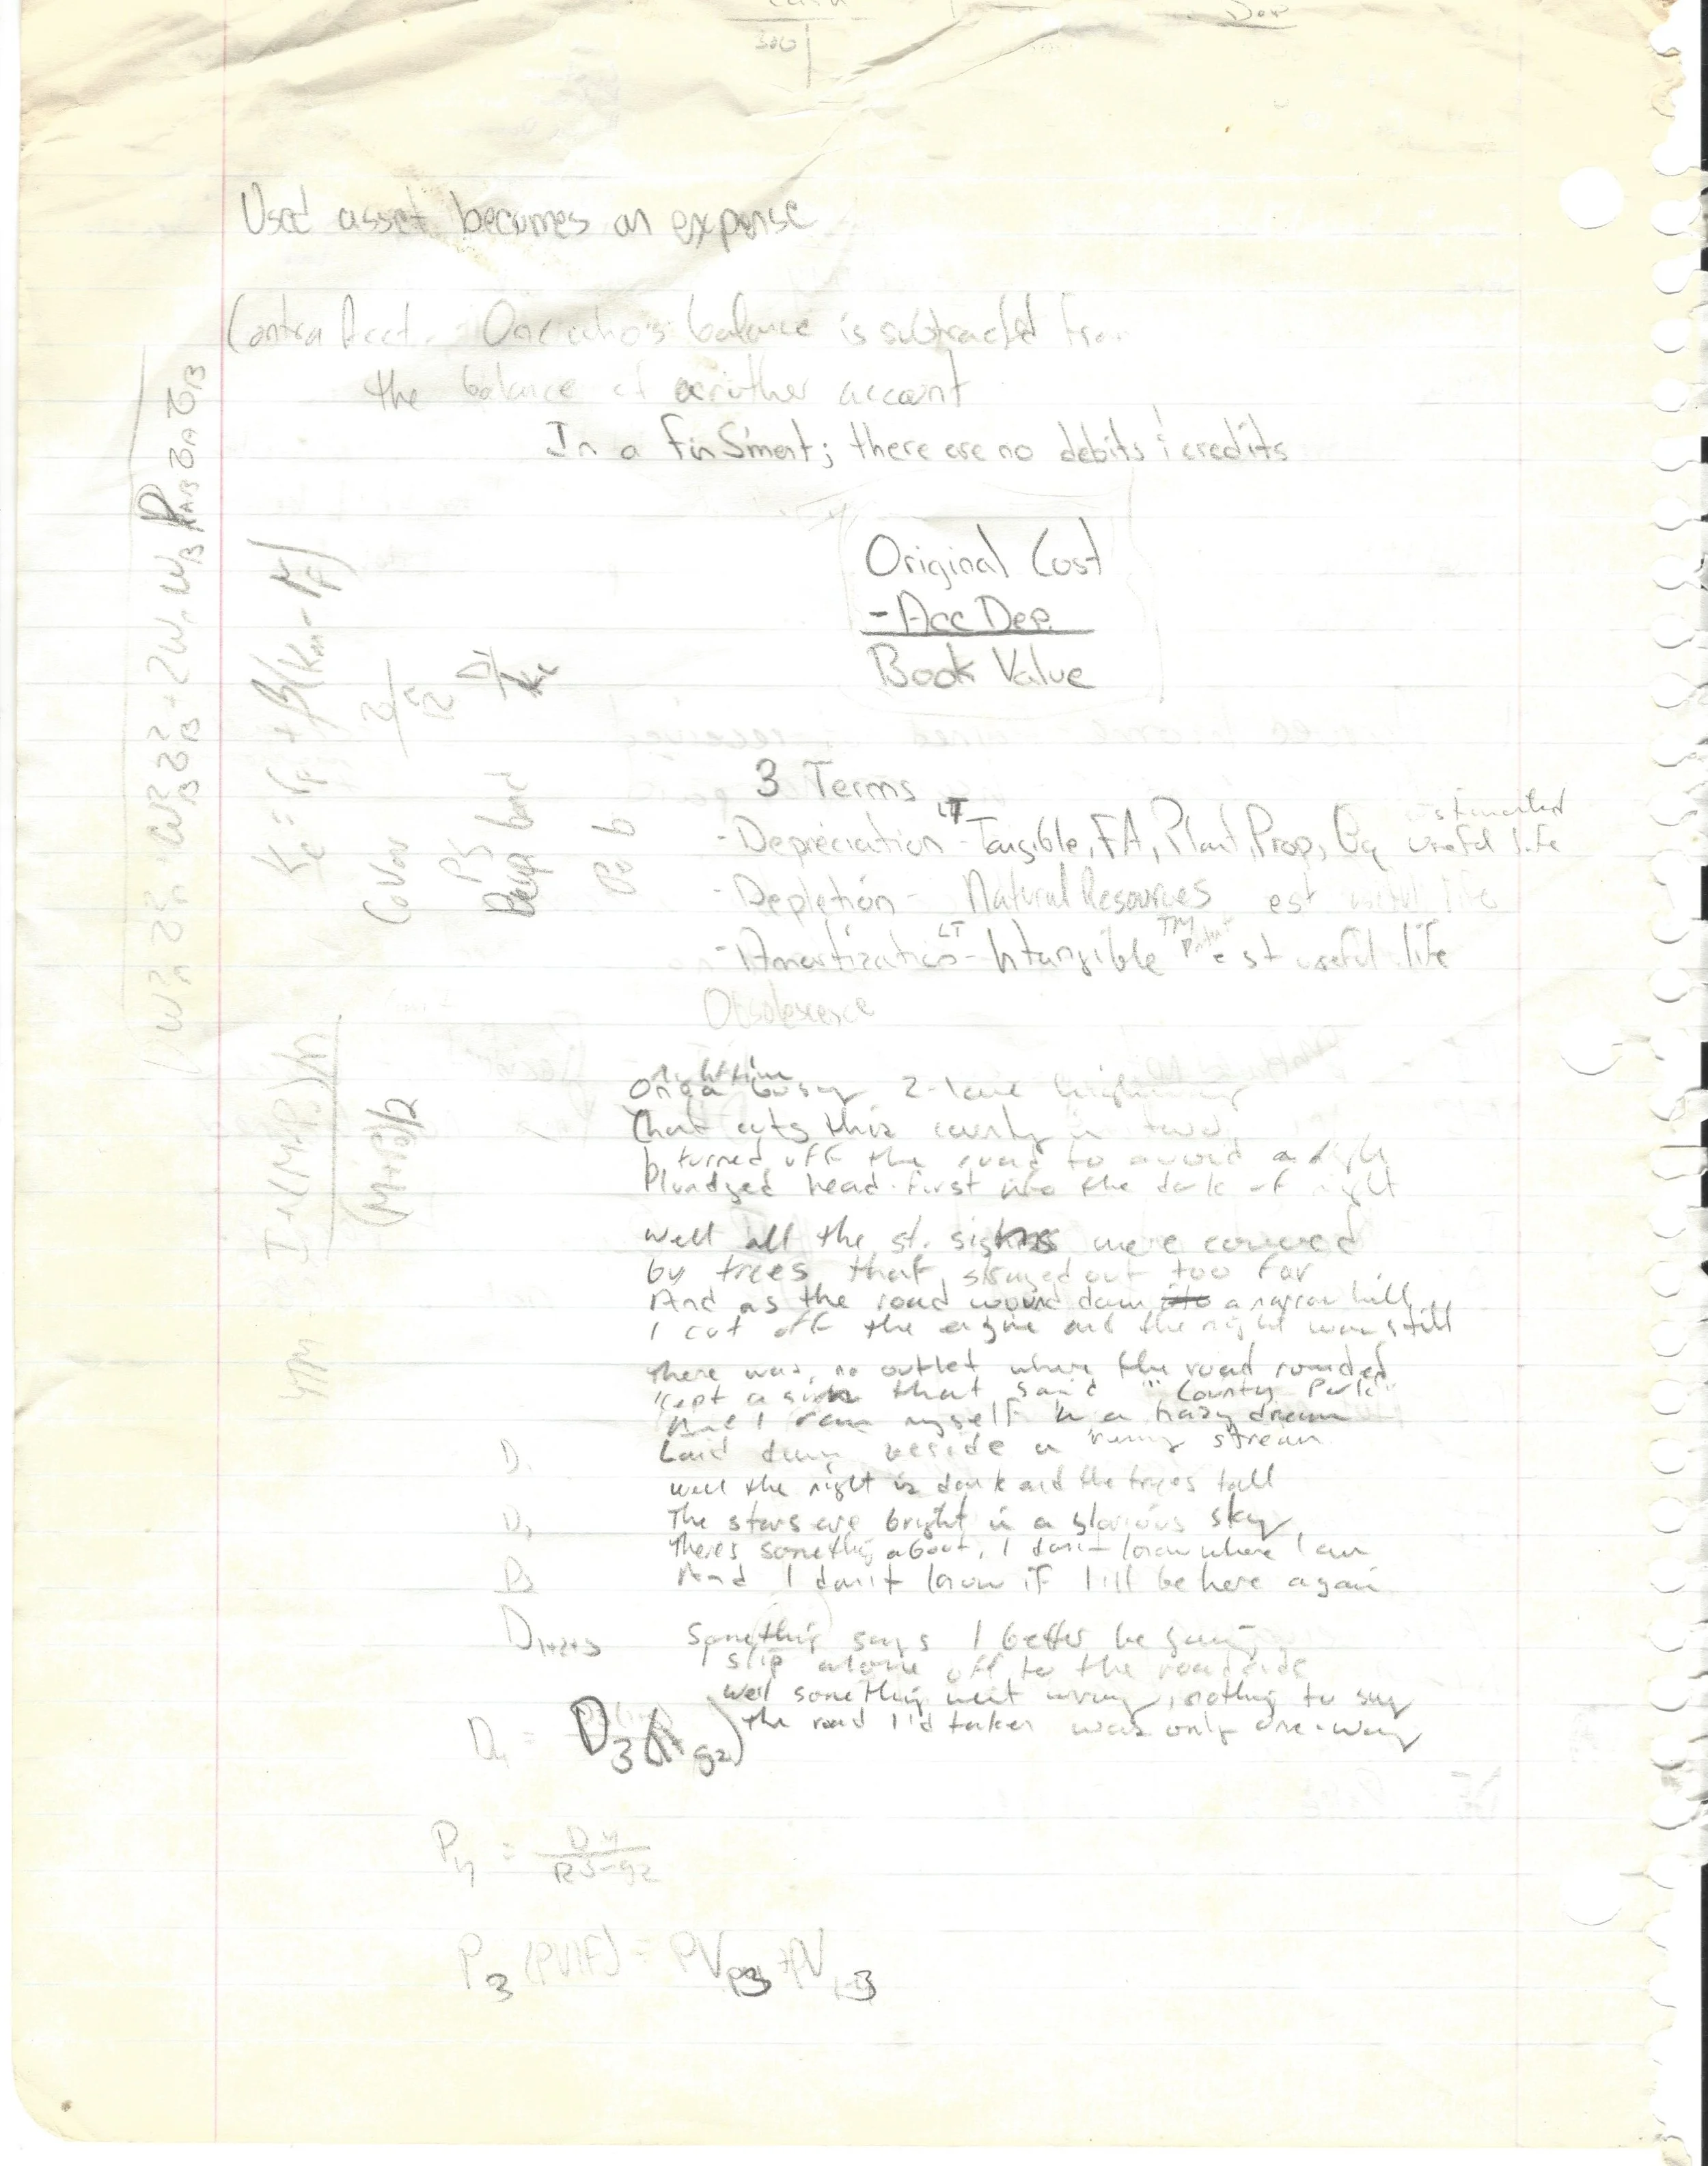 Cash
300
Used asset becomes an expense
Contra Acct. - One who's balance is subtracted from
the balance of another account
In a FinS'ment; there are no debits & credits
Original Cost
- Acc Dep.
Book Value
3 Terms
- Depreciation - LT Tangible, FA, Plant, Prop, Eq estimated useful life
- Depletion - Natural Resources est useful life
- Amortization - LT Intangible TM Patent est useful life
Obsolescence
On a busy 2-lane highway
nighttime
That cuts this county in two
I turned off the road to avoid a
Plundged head-first into the dark of night
Well all the st. signs were covered
by trees that, strayed out too far
And as the road wound down a narrow hill
I cut off the engine and the night was still
There was no outlet where the road rounded
'cept a sign that said "County Park"
And I saw myself in a hazy dream
Laid down beside a stream
Well the night is dark and the trees tall
The stars are bright in a glorious sky,
There's something about, I don't know where I am
And I don't know if I'll be here again
Something says I better be going
I slip alone off to the roadside
Well something went wrong, nothing to say
The road I'd taken was only one-way
D1+2+3
D4 = D3(1+g2)
P4 = D4
RS-g2
P3 (PVIF) = PVP3 + PV1-3
Ke = rF + B(Km - rF)
CoVar
I+(M-P)/n
(M+P)/2
YTM